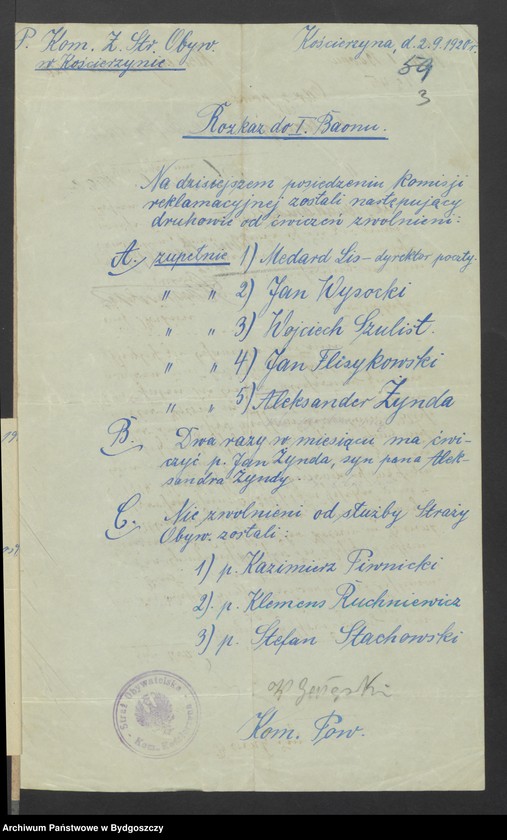 P. Kom. Z. Str. Obyw.
w Kościerzynie
Kościerzyna, d. 2.9.1920 r.
59
3
Rozkaz do I. Baonu.
Na dzisiejszem posiedzeniu komisji
reklamacyjnej zostali następujący
druhowie od ćwiczeń zwolnieni:
A. zupełnie 1) Medard Lis – dyrektor poczty.
" " 2) Jan Wysocki
" " 3) Wojciech Szulist.
" " 4) Jan Flisykowski
" " 5) Aleksander Żynda
B. Dwa razy w miesiącu ma ćwi-
czyć p. Jan Żynda, syn pana Alek-
sandra Żyndy.
C. Nie zwolnieni od służby Straży
Obyw. zostali:
1) p. Kazimierz Piwnicki
2). p. Klemens Ruchniewicz
3) p. Stefan Stachowski
Kom. Pow.
Straż Obywatelska
Archiwum Państwowe w Bydgoszczy